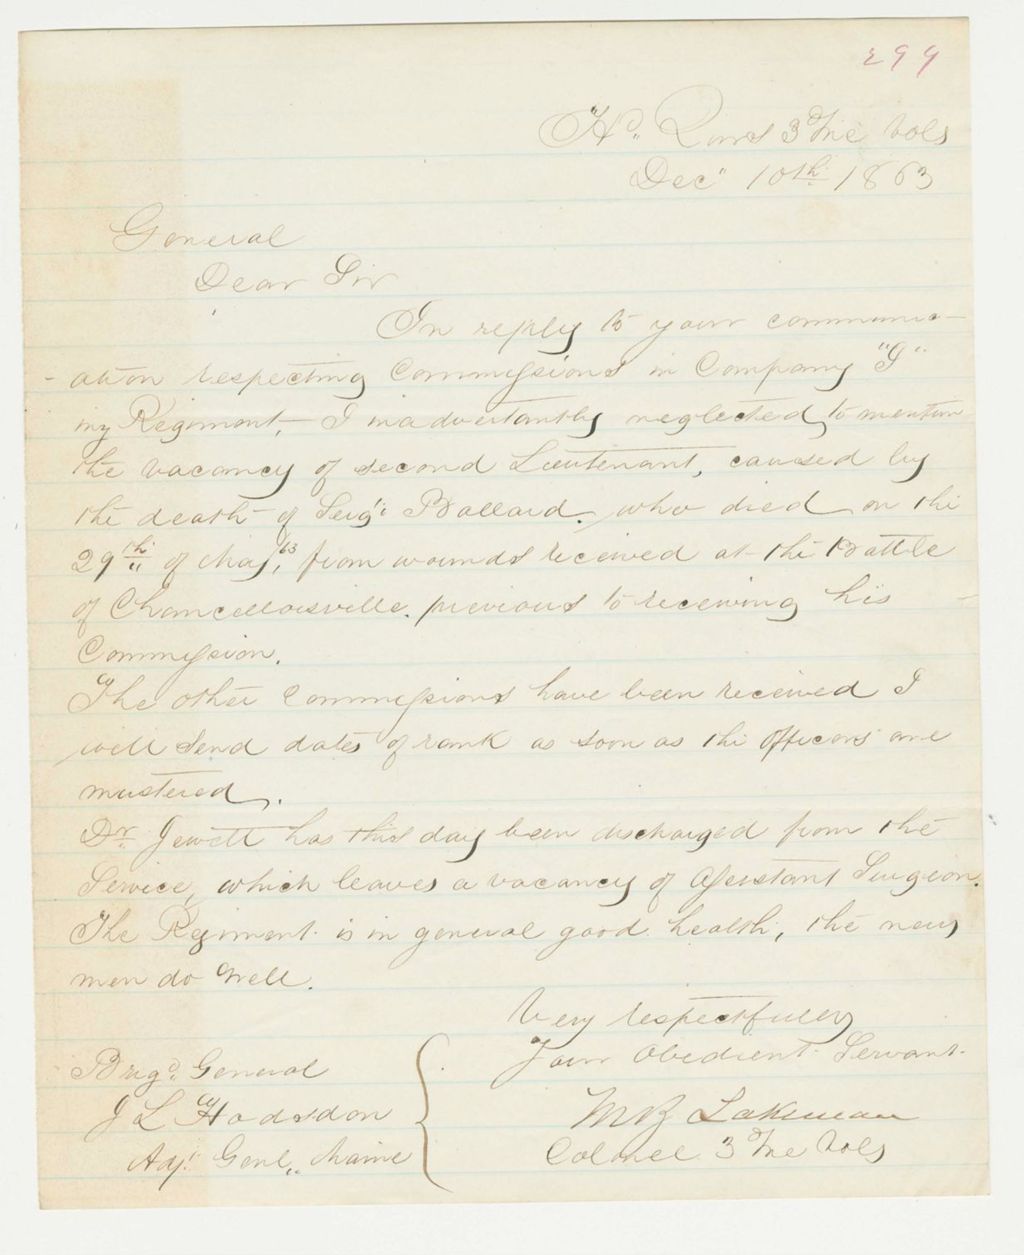 299
Hd. Qurs 3d Me Vols
Dec" 10th 1863
General
Dear Sir
In reply to your communic-
-ation respecting Commissions in Company "G"
my Regiment, - I inadvertantly neglected, to mention
the vacancy of second Lieutenant, caused by
the death of Serg't Ballard. who died on the
29th of May, 63, from wounds received at the Battle
of Chancellorsville. previous to receiving his
Commission.
The other Commissions have been received I
will send dates of rank as soon as the officers are
mustered.
Dr. Jewett has this day been discharged from the
Service, which leaves a vacancy of Assistant Surgeon.
The Regiment is in general good health, the new
men do well.
Very respectfully
Your Obedient Servant.
M B Lakeman
Colonel 3 Me Vols
Brigd. General
J L Hodsdon
Adjt Genl,, Maine